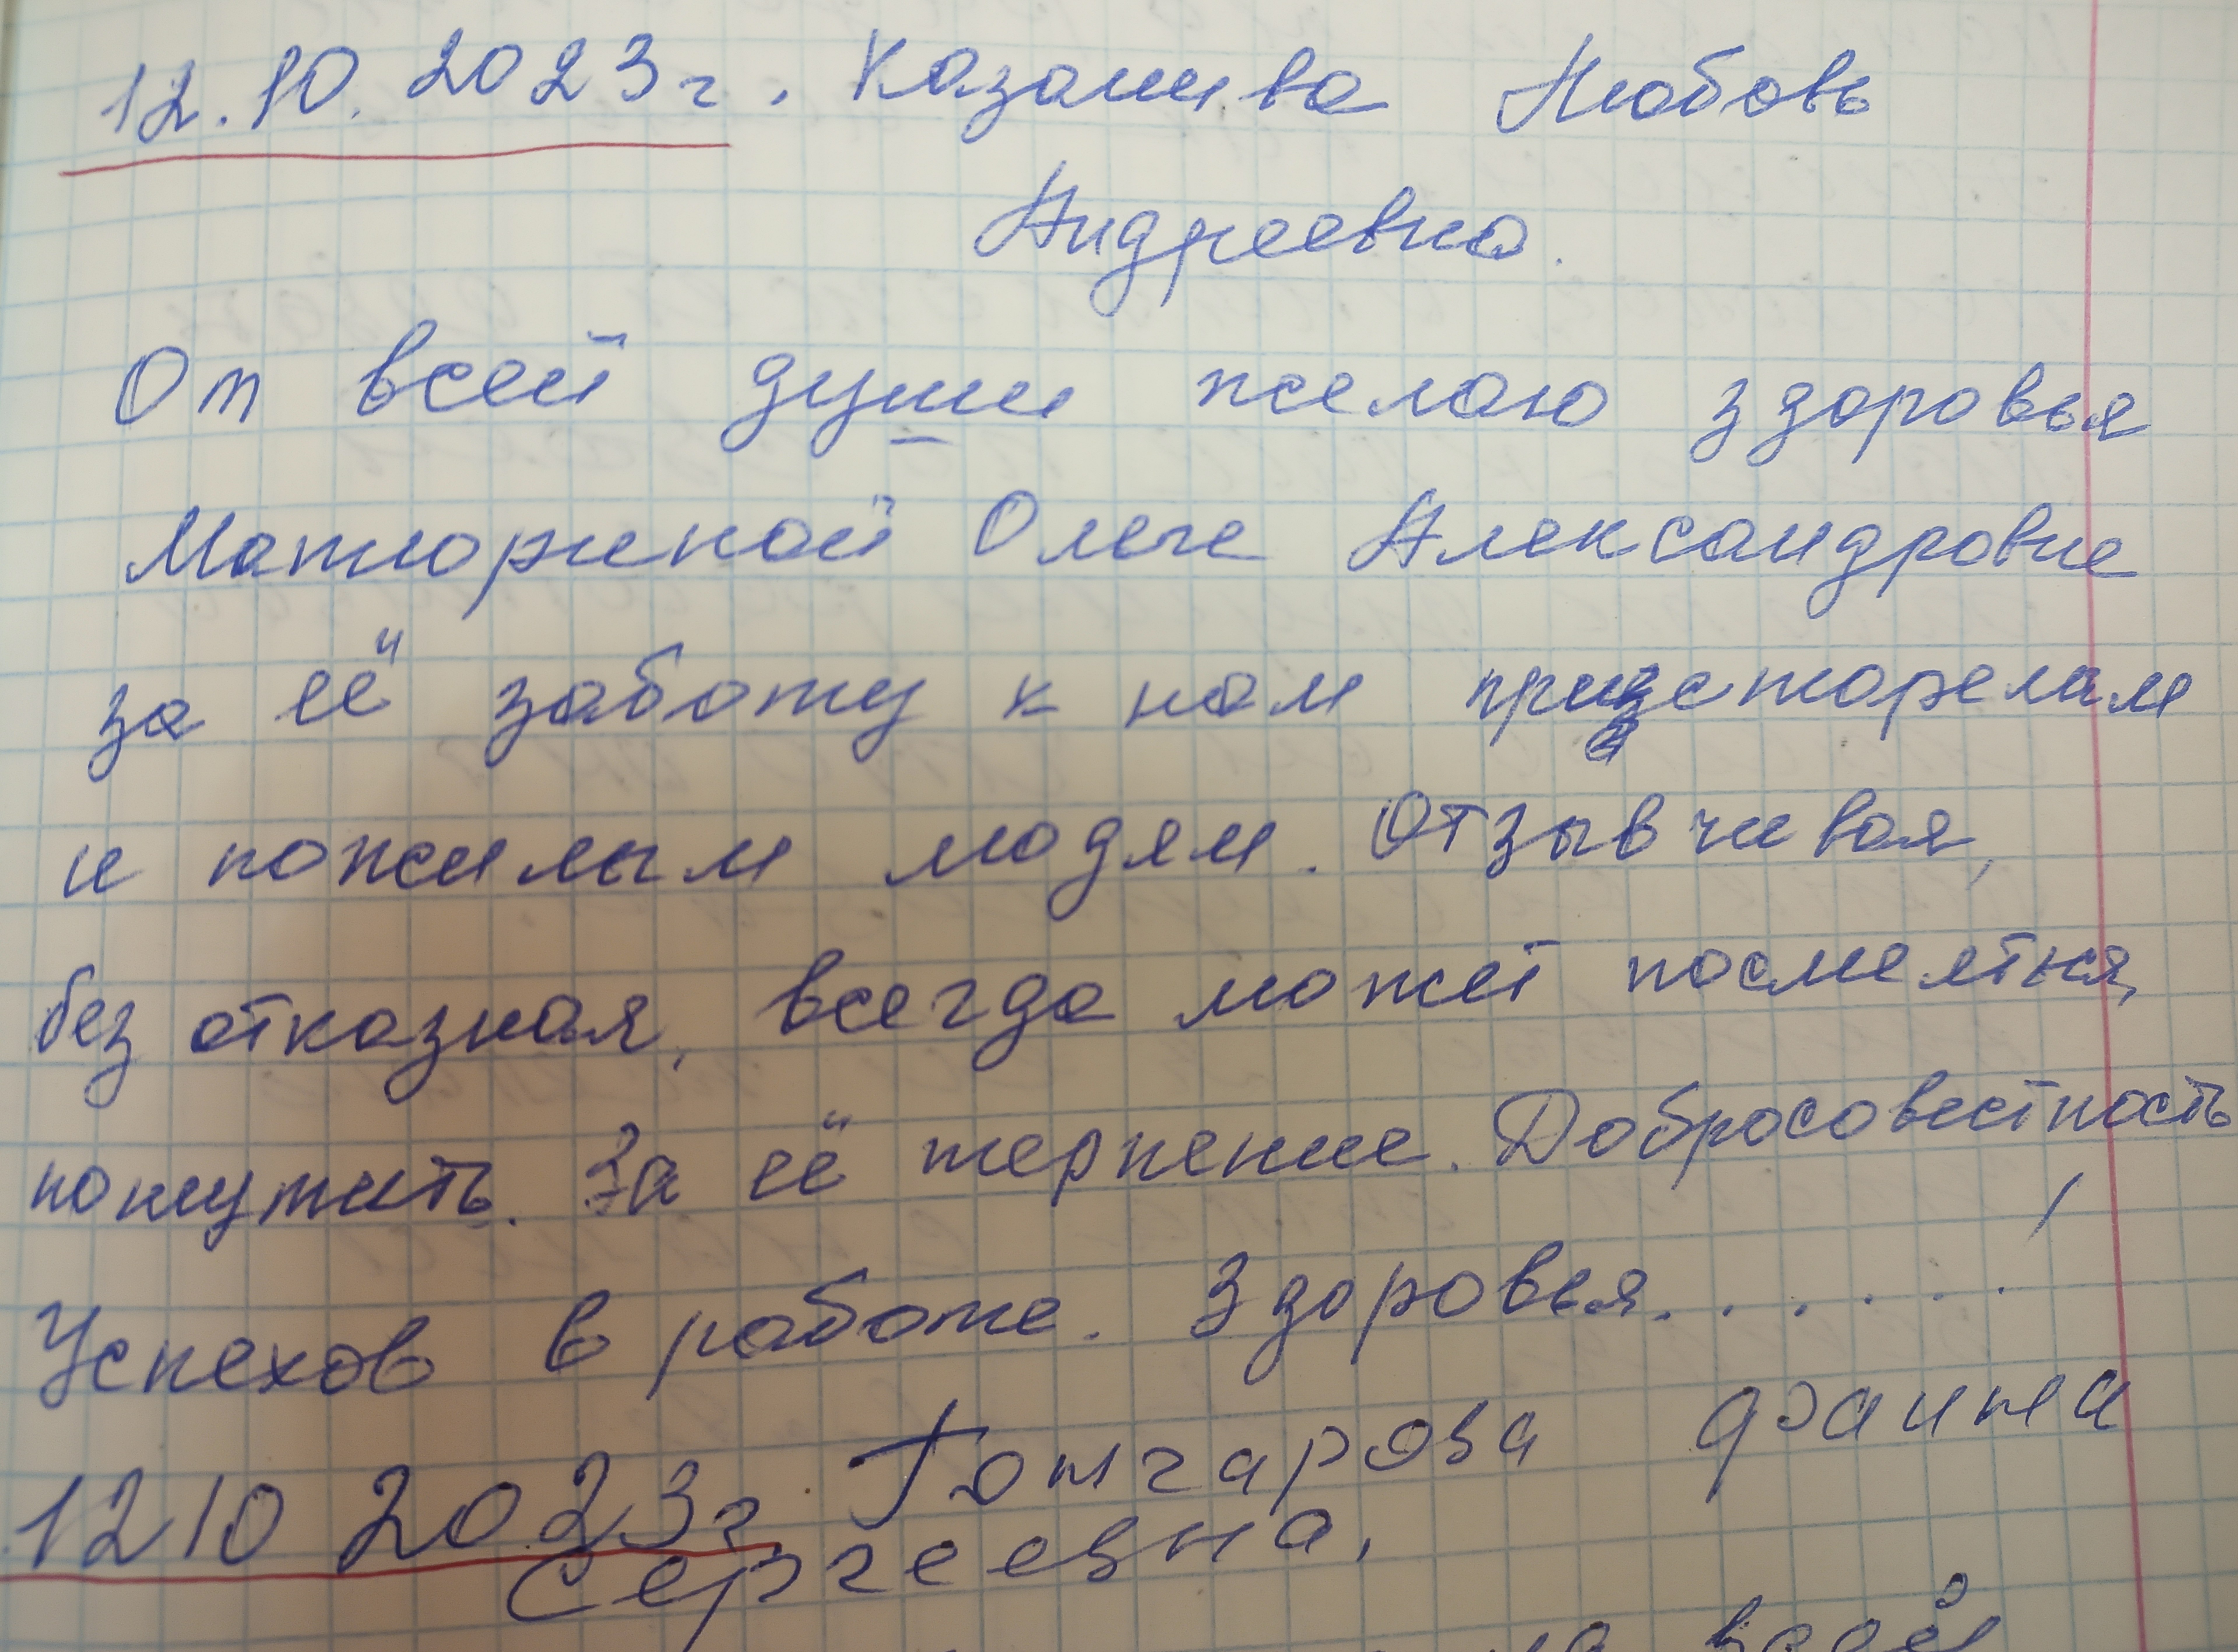 12.10.2023г. Казанива Любовь
Андреевна.
От всей души желаю здоровья
Матюриной Ольге Александровне
за её заботу к нам престарелам
и пожилым людям. Отзывчивая,
без отказная, всегда может посмеятся,
пошутить. За её терпение. Добросовестность
Успехов в работе. Здоровья......!
12 10 2023г. Гончарова
Сергеевна.
всей